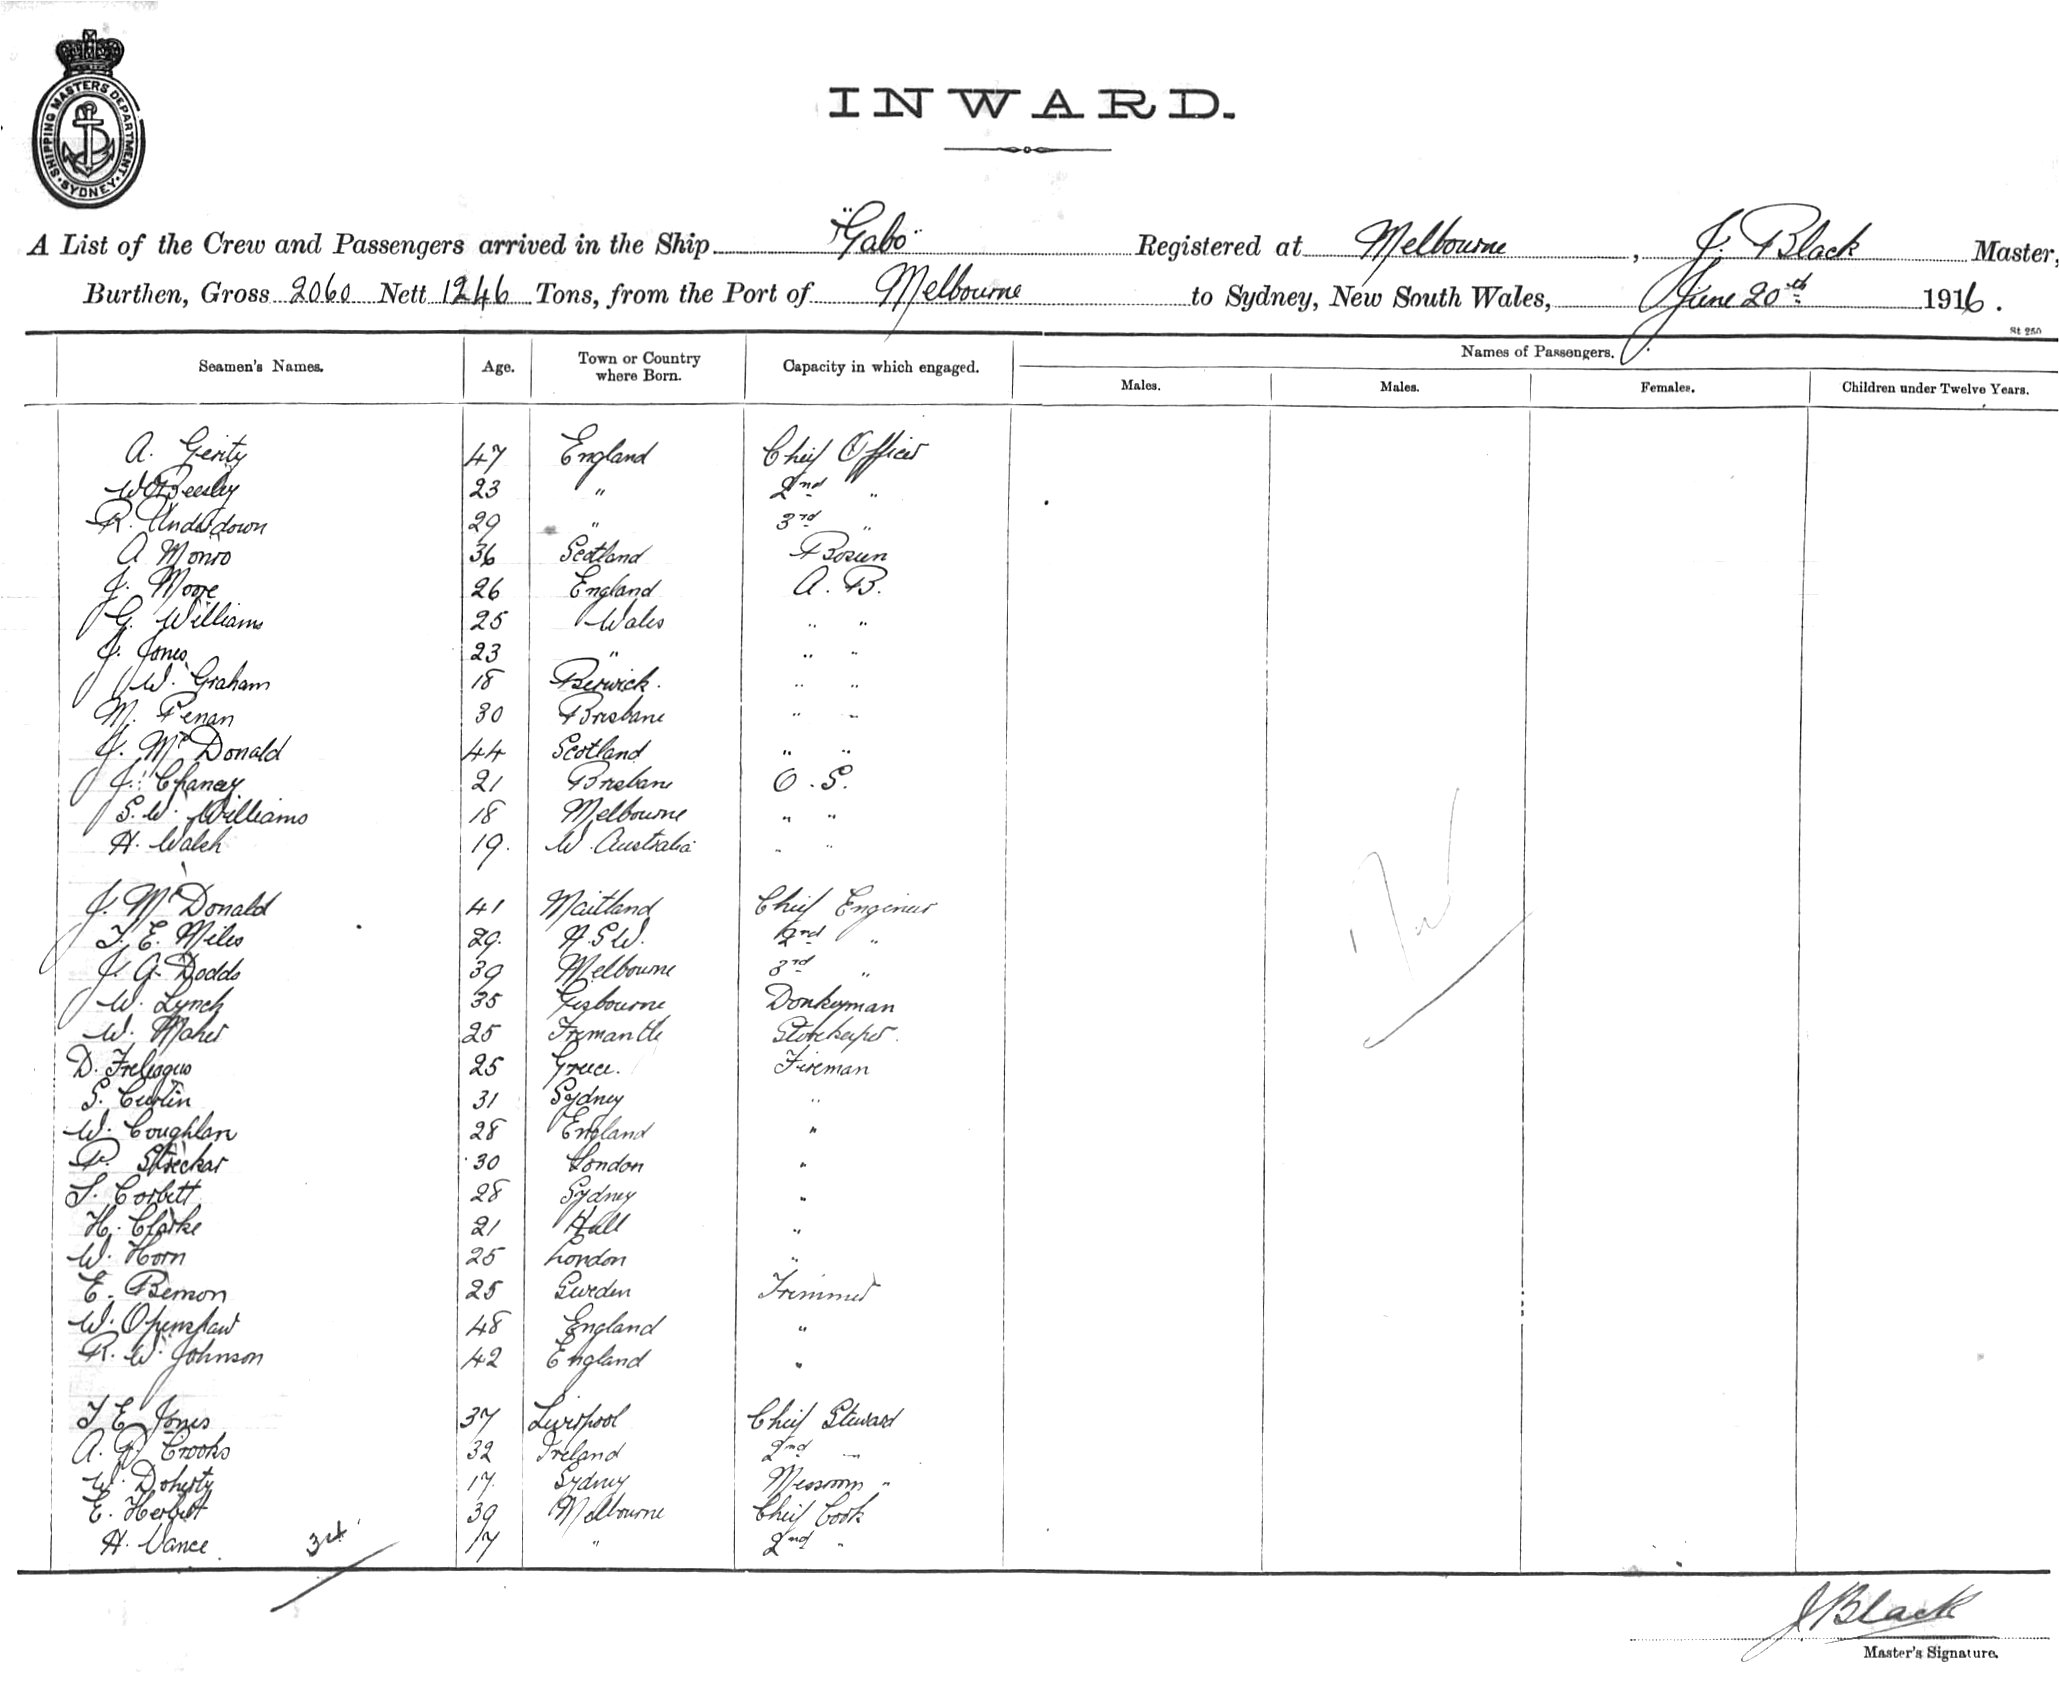 SHIPPING MASTERS DEPARTMENT · SYDNEY ·
INWARD.
A List of the Crew and Passengers arrived in the Ship "Gabo" Registered at Melbourne, J. Black Master,
Burthen, Gross 2060 Nett 1246 Tons, from the Port of Melbourne to Sydney, New South Wales, June 20th 1916.
St 250
Names of Passengers.
Seamen's Names. Age. Town or Country where Born. Capacity in which engaged. Males. Males. Females. Children under Twelve Years.
A. Gerity 47 England Chief Officer
W Beesley 23 " 2nd "
R. Underdown 29 " 3rd "
A Monro 36 Scotland Bosun
J. Moore 26 England A. B.
G. Williams 25 Wales " "
J. Jones 23 " " "
W. Graham 18 Berwick. " "
M. 30 Brisbane " "
J. McDonald 44 Scotland " "
J. Chaney 21 Brisbane O. S.
S. W. Williams 18 Melbourne " "
H. Walsh 19. W. Australia " "
J. McDonald 41 Maitland Chief Engineer
T. E. Miles 29. N.S.W. 2nd "
J. G. Dodds 39 Melbourne 3rd "
W. Lynch 35 Gisbourne Donkeyman
W. Maher 25 Fremantle Storekeeper.
D. 25 Greece. Fireman
S. Curtin 31 Sydney "
W. Coughlan 28 England "
P. 30 London "
S. Corbett 28 Sydney "
H. Clarke 21 Hull "
W. Horn 25 London "
E. Bemon 25 Sweden Trimmer
W. Openshaw 48 England "
R. W. Johnson 42 England "
T E Jones 37 Liverpool Chief Steward
A. Crooks 32 Ireland 2nd "
W. Doherty 17. Sydney Messroom "
E. Herbert 39 Melbourne Chief Cook
H. Vance 17 " 2nd "
34
J Black
Master's Signature.